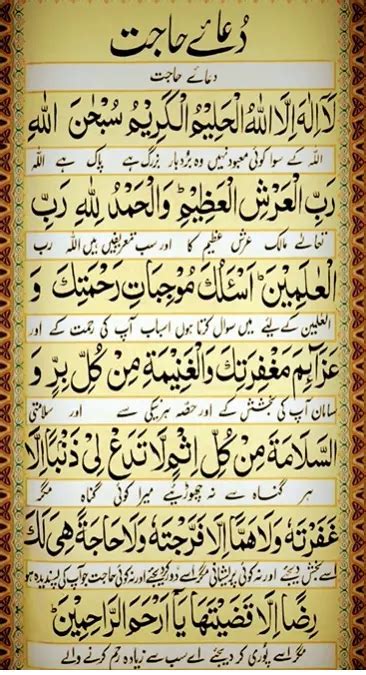 دُعائے حاجت
دعائے حاجت
لَآ اِلٰهَ اِلَّا اللهُ الْحَلِيْمُ الْكَرِيْمُ سُبْحٰنَ اللهِ
اللہ کے سوا کوئی معبود نہیں وہ بردبار بزرگ ہے پاک ہے اللہ
رَبِّ الْعَرْشِ الْعَظِيْمِ ؕ وَالْحَمْدُ لِلّٰهِ رَبِّ
تعالےٰ مالک عرش عظیم کا اور سب تعریفیں ہیں اللہ رب
الْعٰلَمِيْنَ ؕ اَسْئَلُكَ مُوْجِبَاتِ رَحْمَتِكَ وَ
العلمین کے لیئے میں سوال کرتا ہوں اسباب آپ کی رحمت کے اور
عَزَآئِمَ مَغْفِرَتِكَ وَالْغَنِيْمَةَ مِنْ كُلِّ بِرٍّ وَ
سامان آپ کی بخشش کے اور حصّہ ہر نیکی سے اور سلامتی
السَّلَامَةَ مِنْ كُلِّ اِثْمٍ لَّا تَدَعْ لِىْ ذَنْبًا اِلَّا
ہر گناہ سے نہ چھوڑیئے میرا کوئی گناہ مگر
غَفَرْتَهٗ وَلَا هَمًّا اِلَّا فَرَّجْتَهٗ وَلَا حَاجَةً هِىَ لَكَ
اسے بخش دیجئے اور نہ کوئی پریشانی مگر اسے دور کیجئے اور نہ کوئی حاجت جو آپ کی پسندیدہ ہو
رِضًا اِلَّا قَضَيْتَهَا يَآ اَرْحَمَ الرَّاحِمِيْنَ ؕ
مگر اسے پوری کر دیجئے اے سب سے زیادہ رحم کرنے والے